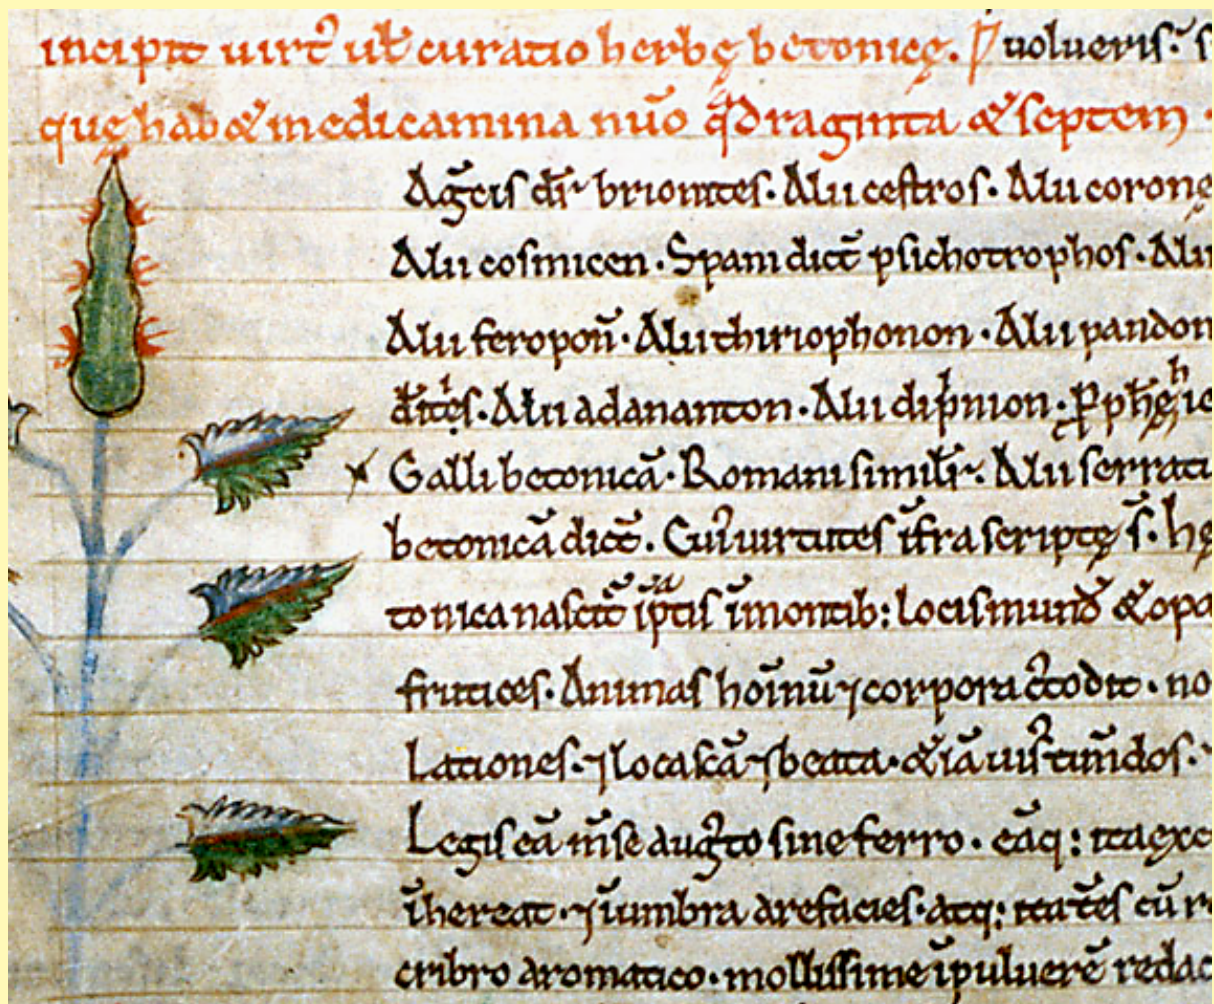 incipit uirt̄ ul̄ curatio herbę betonicę. uolueris.
quę hab& medicamina nūo q̄draginta & septem
A grēcis dr̄ brionites. Alii cestros. Alii coronę
Alii cosmicen. Spani dicc̄ psichotrophos. Alii
Alii feropon̄. Alii thiriophonon. Alii pandon
Alii adananton. Alii dip̄nion.
Galli betonicā. Romani simil̄r. Alii serrati
betonicā dicc̄. Cuı᷒ uirtutes īfra scriptę s̄. hę
tonica nascit᷒ īmontib: locis mund̄ & opa
frutices. Animas hoīnū ⁊ corpora c᷒todit. no
Lationes. ⁊ loca scā ⁊ beata.
Legis eā m̄se aug᷒to sine ferro. eāq: ita exc
īhereat. ⁊ īumbra arefacies. atq: cū r
cribro aromatico. mollissime īpuluerē redac